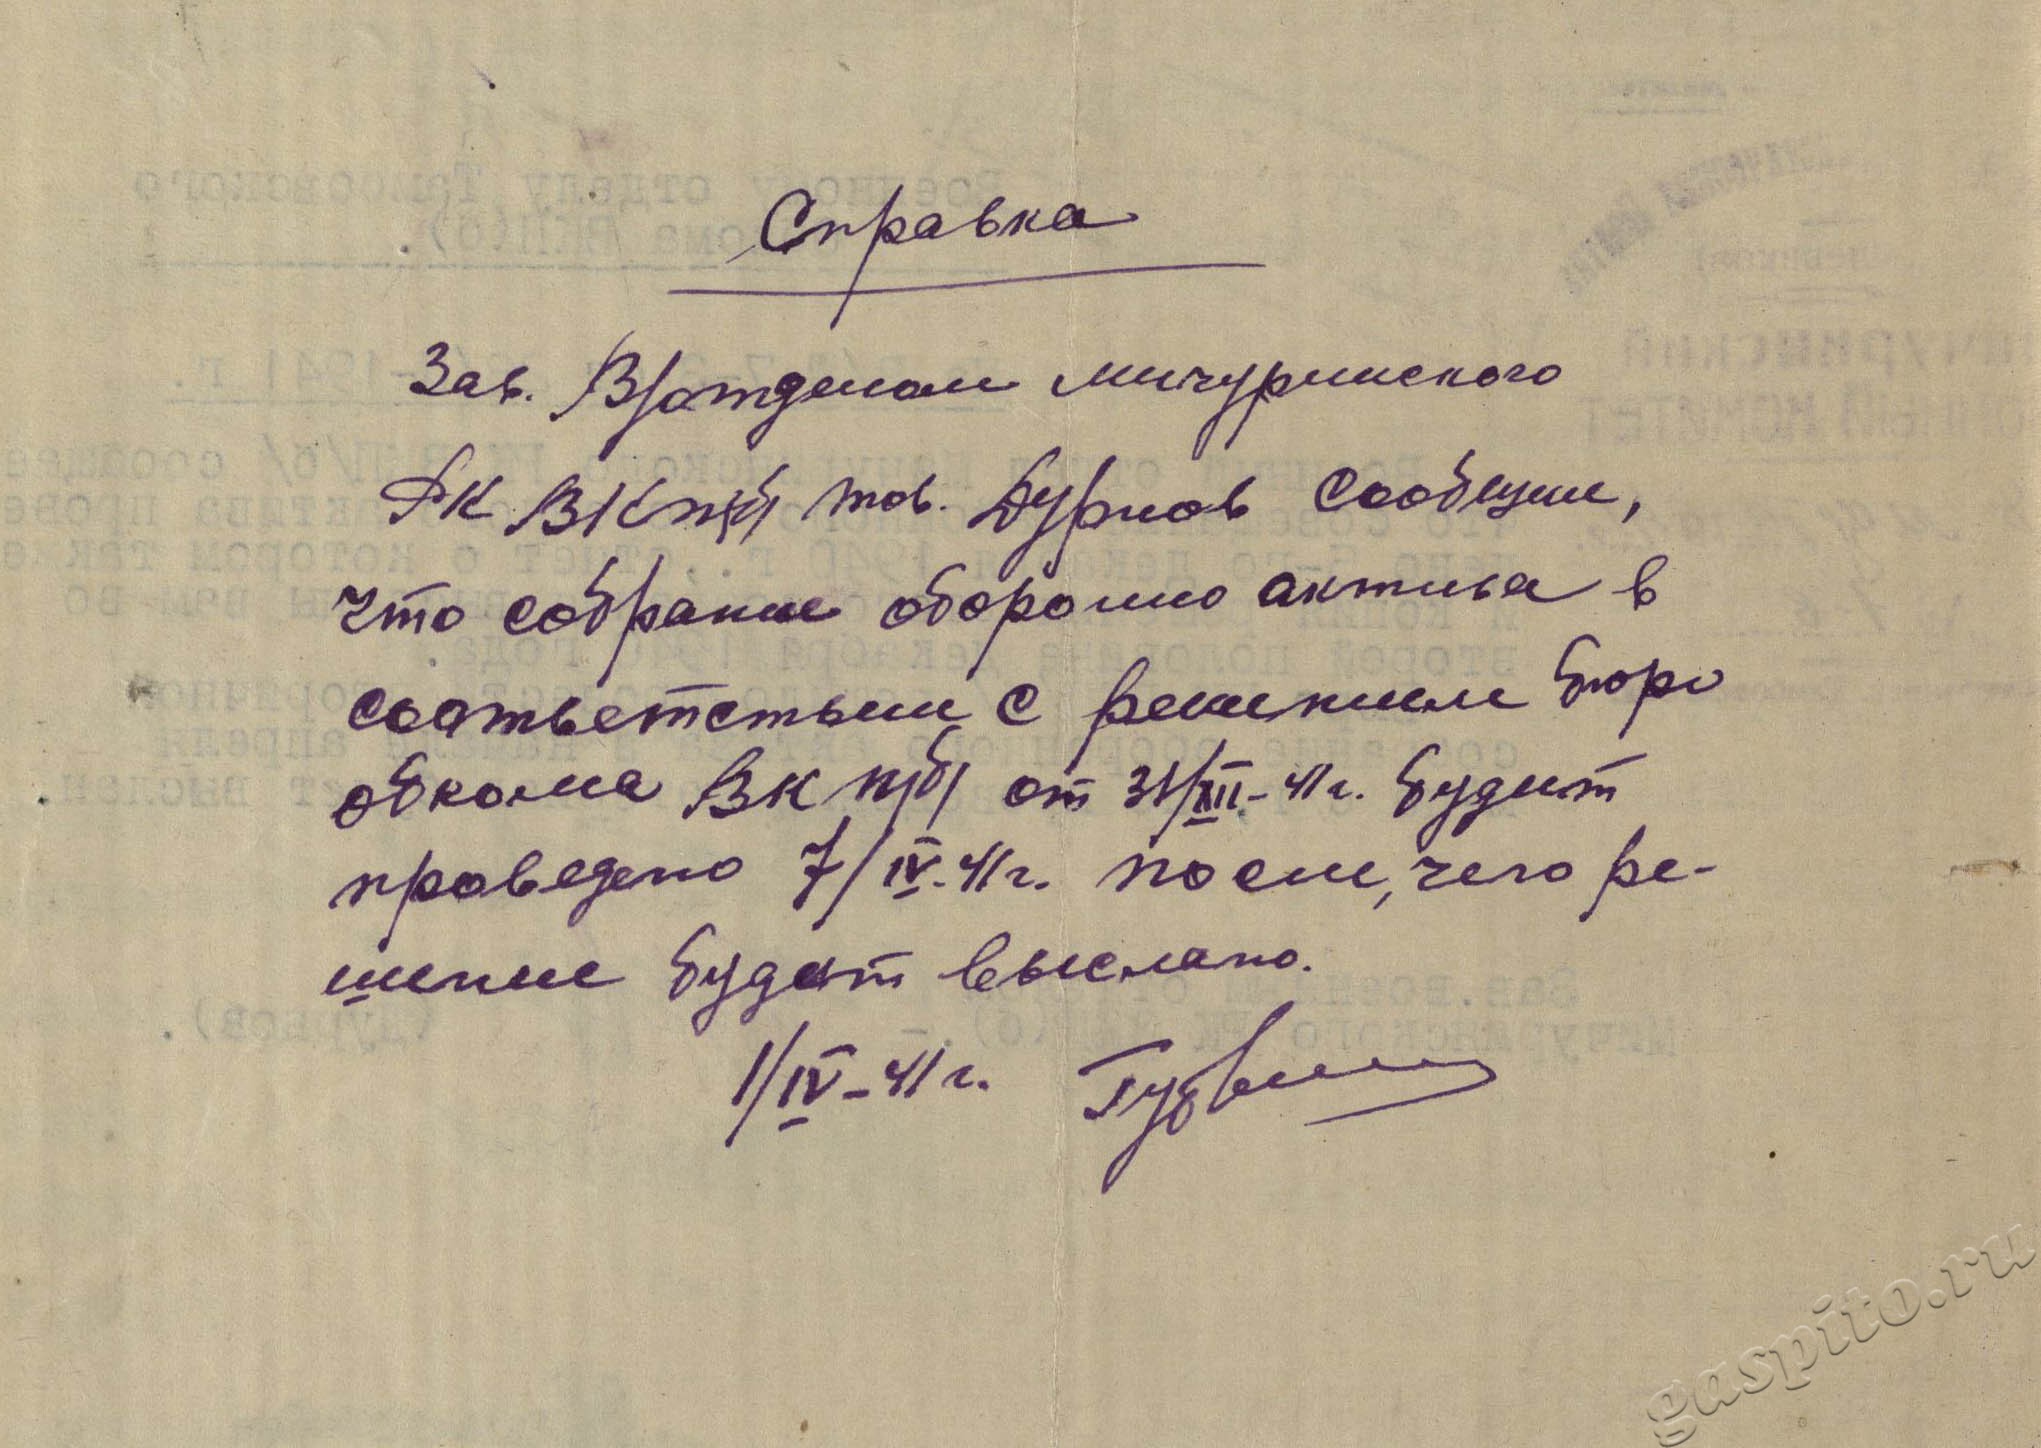 Справка
Зав. В/отделом мичуринского
РК ВКП/б/ тов. Дурнов сообщил,
что собрание оборонно актива в
соответствии с решением бюро
обкома ВКП/б/ от 31/XII-41г. будет
проведено 7/IV-41г. после, чего ре-
шение будет выслано.
1/IV-41г.
gaspito.ru